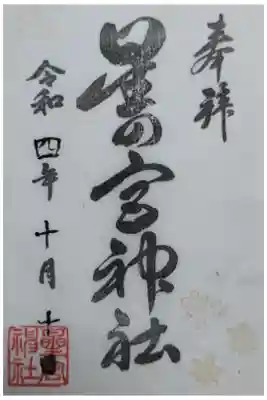 奉拜
星の宮神社
令和四年十月十